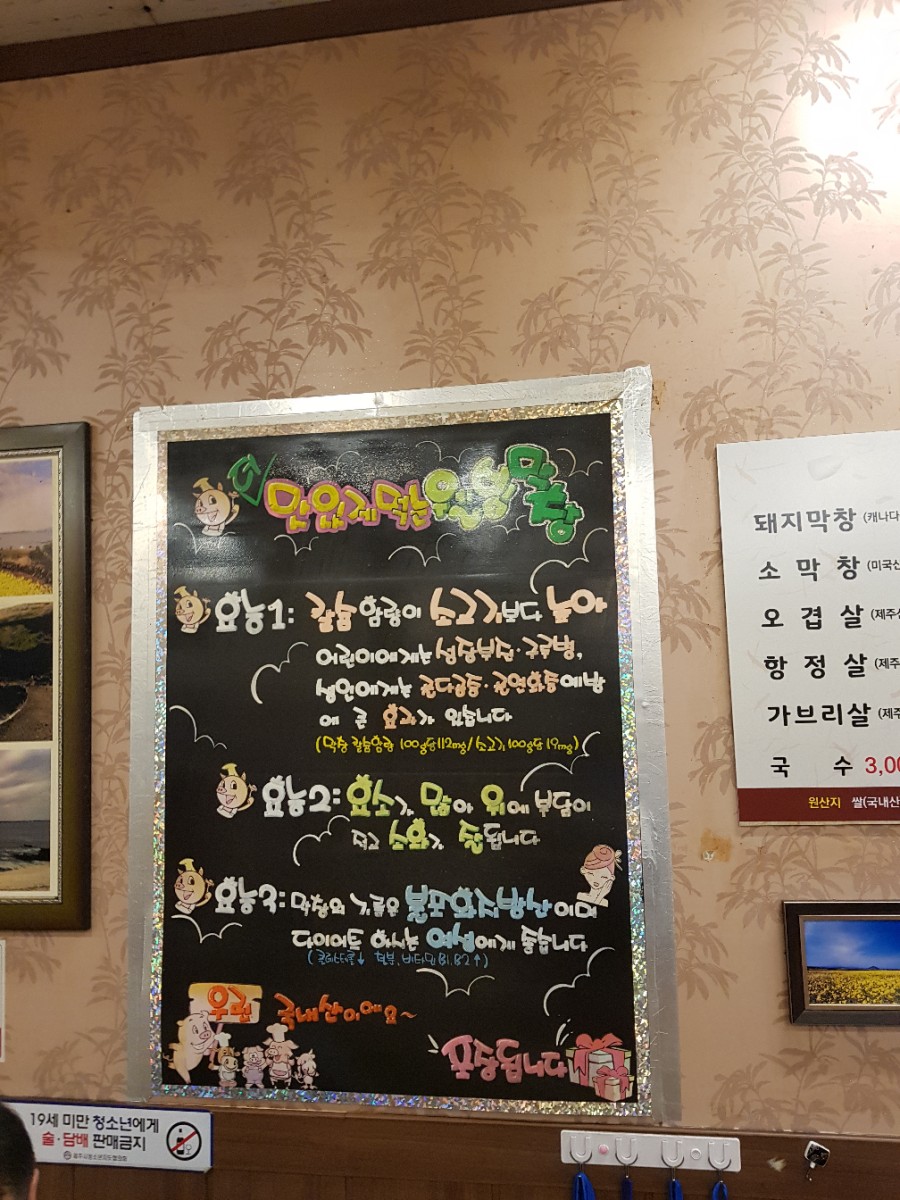 맛있게먹는 막창
효능1: 칼슘 함량이 소고기보다 높아
어린이에게는 성장부진·구루병,
성인에게는 골다공증·골연화증예방
에 큰 효과가 있습니다
(막창 칼슘함량 100g당112mg/소고기 100g당 19mg)
효능2: 효소가 많아 위에 부담이
적고 소화가 잘됩니다
효능3: 막창의 기름은 불포화지방산이며
다이어트 여성에게 좋습니다
(콜레스테롤↓ 철분, 비타민B1,B2↑)
우린 국내산이에요~
포장됩니다
돼지막창 (캐나다
소막창 (미국산
오겹살 (제주
항정살 (제주
가브리살 (제주
국수 3,00
원산지 쌀(국내산
19세 미만 청소년에게
술·담배 판매금지